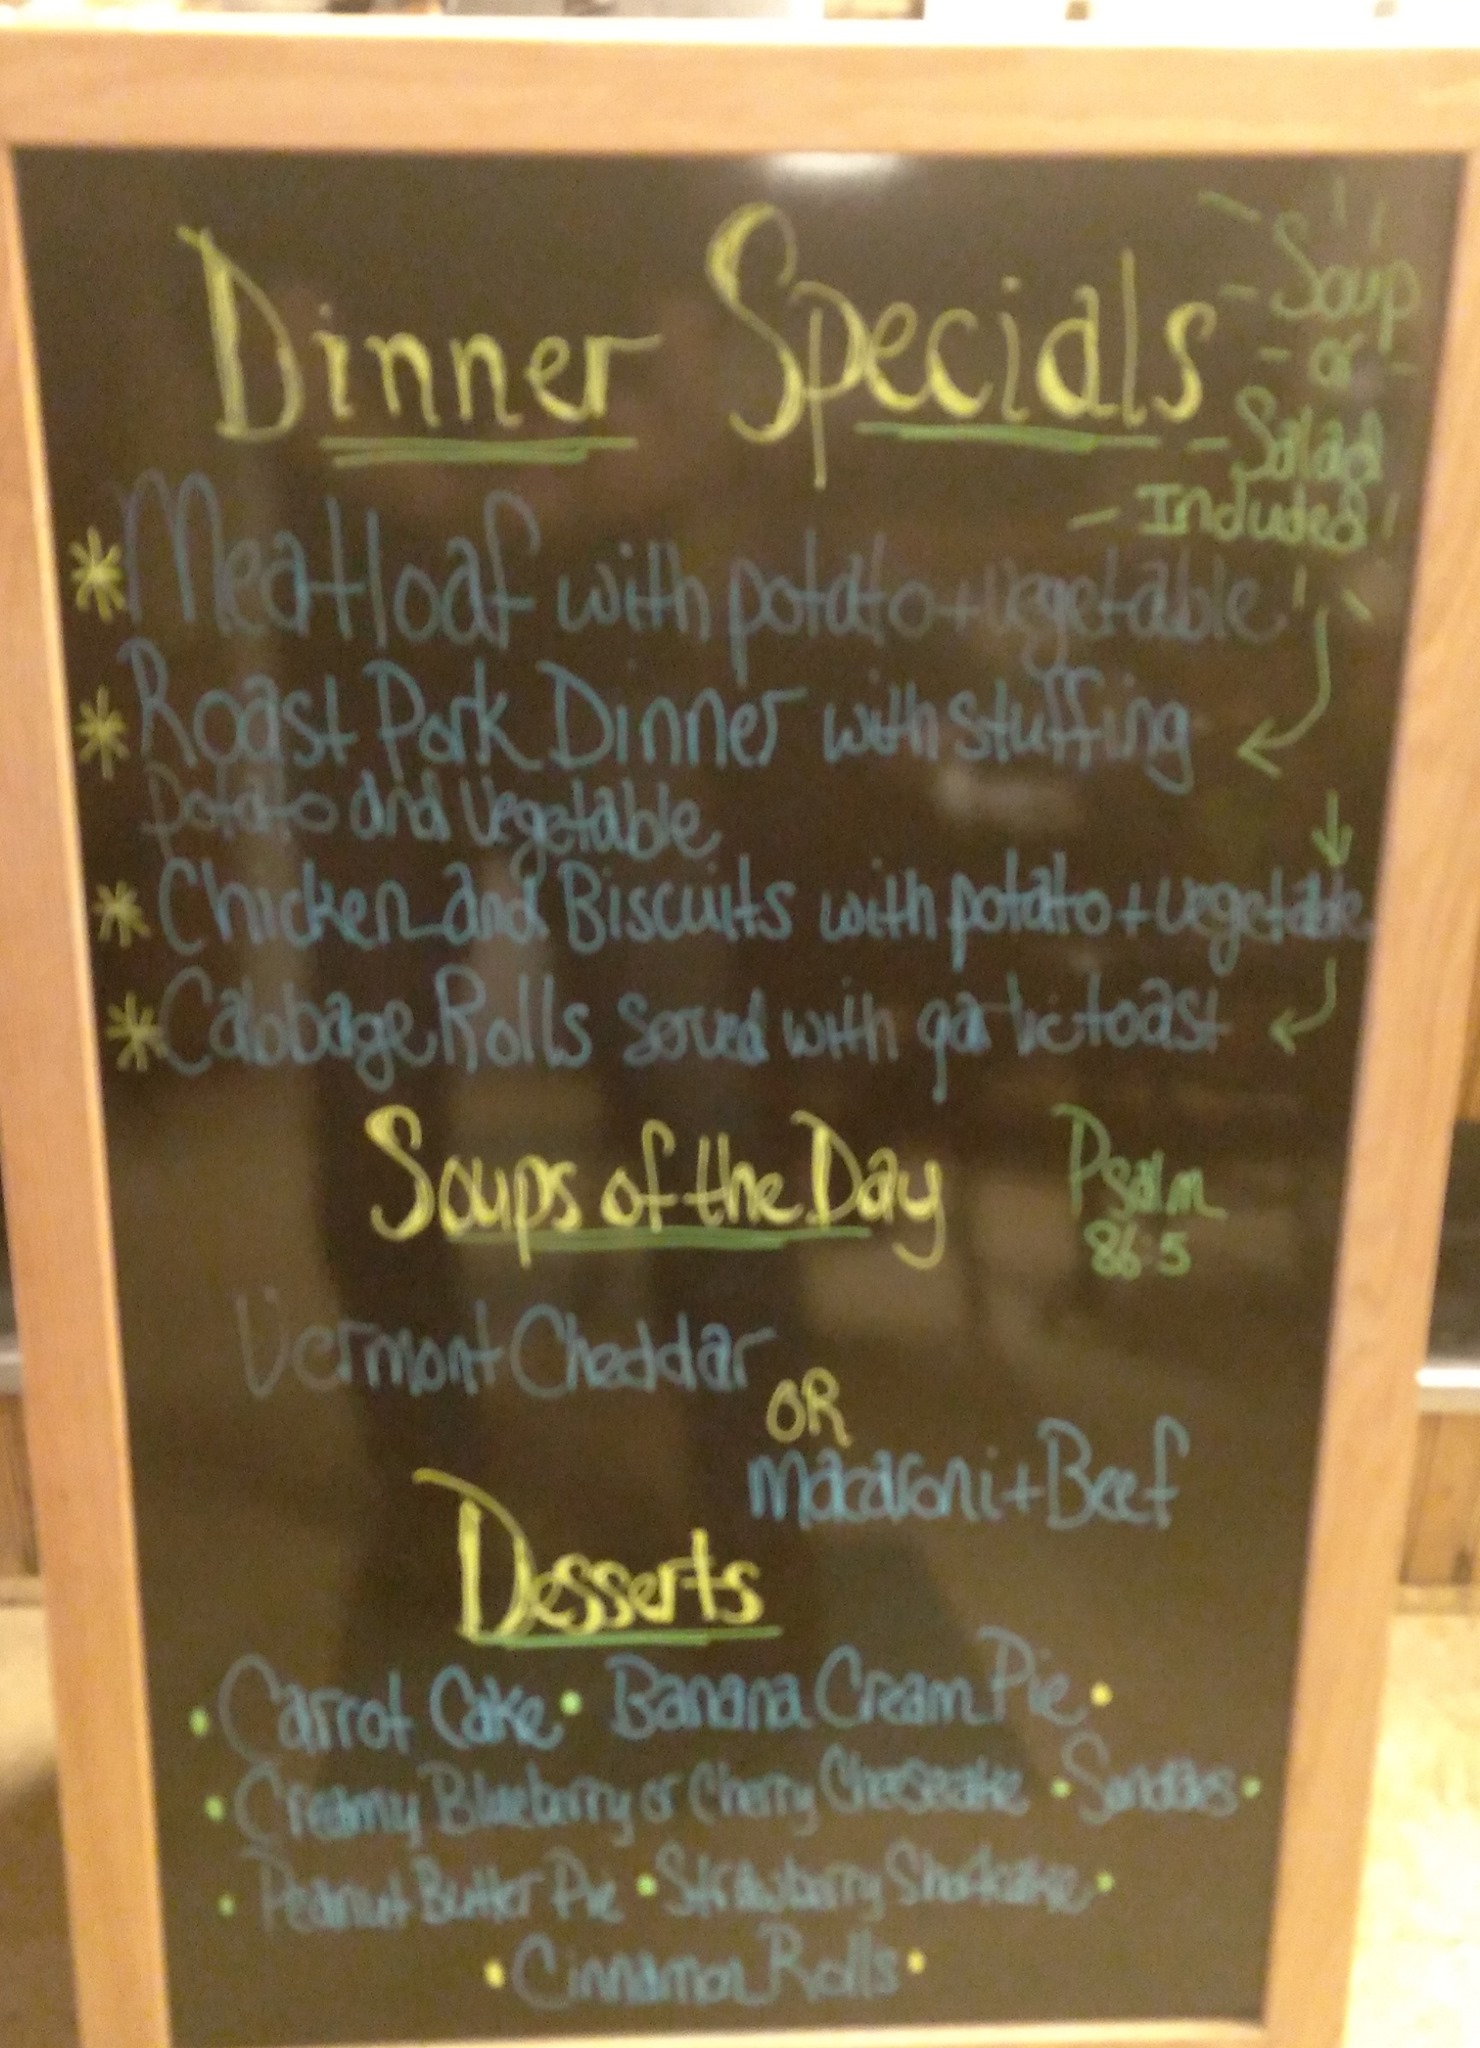 Dinner Specials
Soup
- or -
Salad
Included!
* Meatloaf with potato + vegetable
* Roast Pork Dinner with stuffing
potato and vegetable
* Chicken and Biscuits with potato + vegetable
* Cabbage Rolls served with garlic toast
Soups of the Day
Psalm
86:5
Vermont Cheddar
OR
Macaroni + Beef
Desserts
• Carrot Cake • Banana Cream Pie •
• Creamy Blueberry or Cherry Cheesecake • Sundaes •
• Peanut Butter Pie • Strawberry Shortcake •
• Cinnamon Rolls •